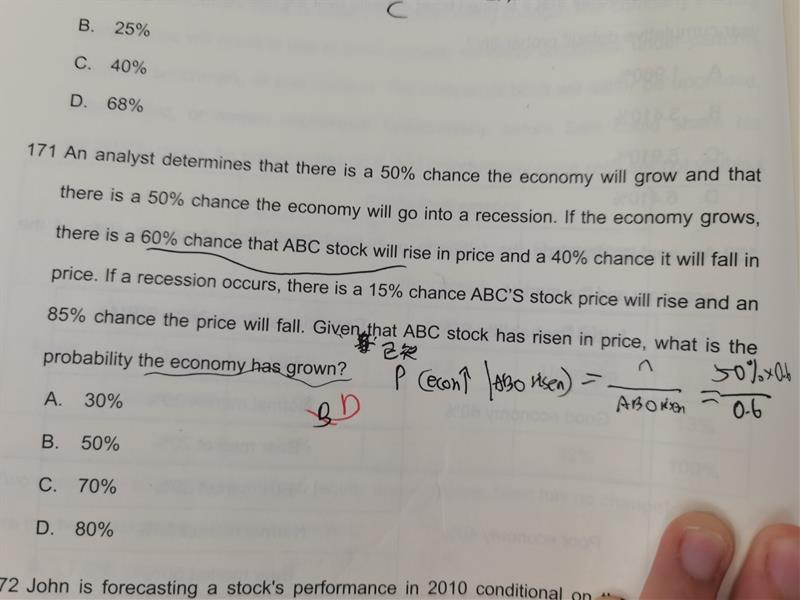 C
B. 25%
C. 40%
D. 68%
171 An analyst determines that there is a 50% chance the economy will grow and that
there is a 50% chance the economy will go into a recession. If the economy grows,
there is a 60% chance that ABC stock will rise in price and a 40% chance it will fall in
price. If a recession occurs, there is a 15% chance ABC'S stock price will rise and an
85% chance the price will fall. Given that ABC stock has risen in price, what is the
已知
probability the economy has grown?
P (econ↑ | ABO risen) = ∩ / ABO risen = 50% x 0.6 / 0.6
A. 30%
B D
B. 50%
C. 70%
D. 80%
72 John is forecasting a stock's performance in 2010 conditional on